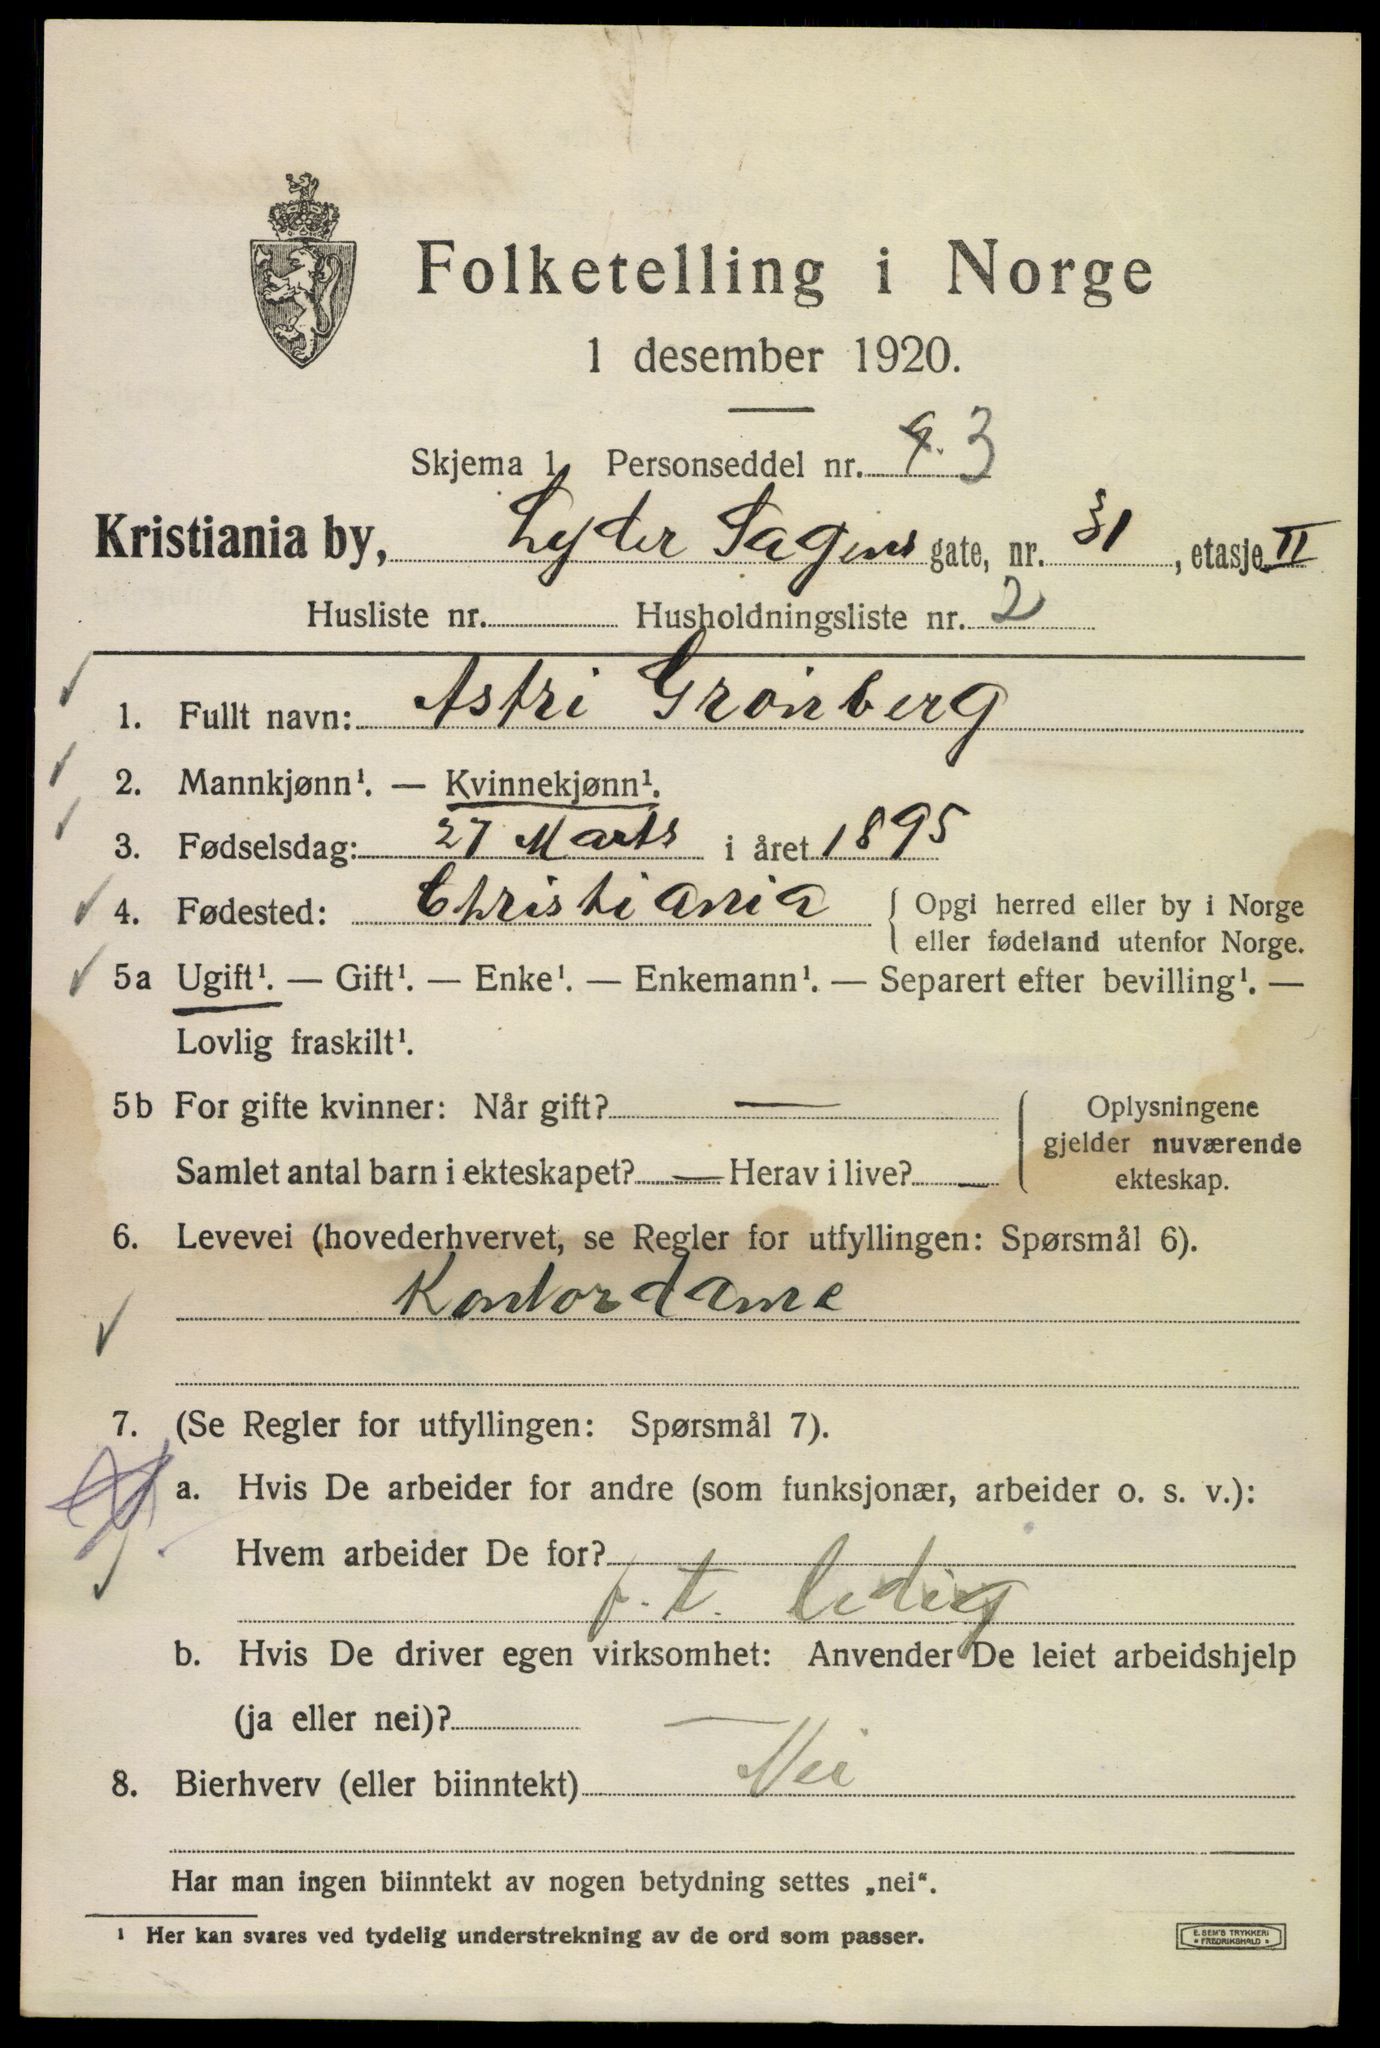 Folketelling i Norge
1 desember 1920.
Skjema 1 Personseddel nr. 3
Kristiania by, Lyder Sagens gate, nr. 31, etasje II
Husliste nr. Husholdningsliste nr. 2
1. Fullt navn: Astri Grönberg
2. Mannkjønn¹. — Kvinnekjønn¹.
3. Fødselsdag: 27 Marts i året 1895
4. Fødested: Christiania { Opgi herred eller by i Norge
eller fødeland utenfor Norge.
5a Ugift¹. — Gift¹. — Enke¹. — Enkemann¹. — Separert efter bevilling¹. —
Lovlig fraskilt¹.
5b For gifte kvinner: Når gift? — { Oplysningene
gjelder nuværende
Samlet antal barn i ekteskapet? — Herav i live? — ekteskap.
6. Levevei (hovederhvervet, se Regler for utfyllingen: Spørsmål 6).
Kontordame
7. (Se Regler for utfyllingen: Spørsmål 7).
a. Hvis De arbeider for andre (som funksjonær, arbeider o. s. v.):
Hvem arbeider De for?
f. t. ledig
b. Hvis De driver egen virksomhet: Anvender De leiet arbeidshjelp
(ja eller nei)? —
8. Bierhverv (eller biinntekt) Nei
Har man ingen biinntekt av nogen betydning settes „nei“.
¹ Her kan svares ved tydelig understrekning av de ord som passer.
E. SEM'S TRYKKERI
FREDRIKSHALD